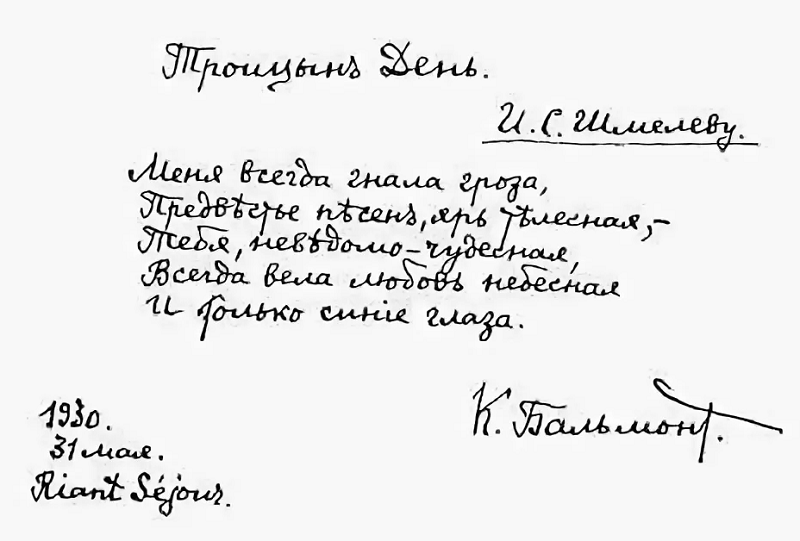 Троицынъ День.
И. С. Шмелеву.
Меня всегда гнала гроза,
Предвѣстье пѣсенъ, ярь тѣлесная,–
Тебя, невѣдомо-чудесная,
Всегда вела любовь небесная
И только синіе глаза.
К. Бальмонт.
1930.
31 мая.
Riant Séjour.